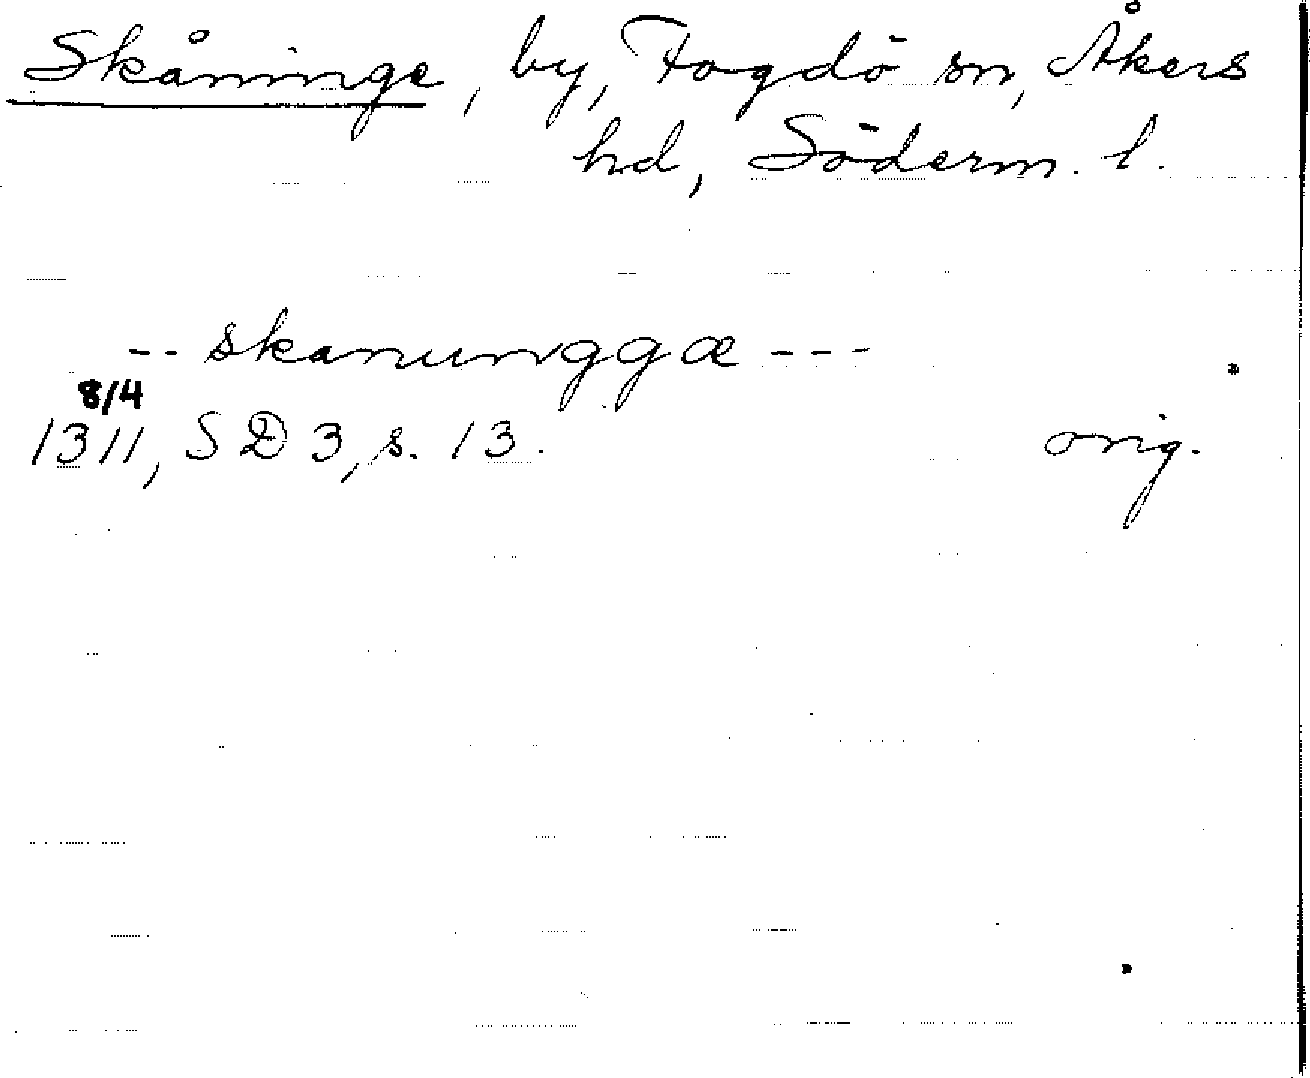 Skåninge, by, Fogdö sn, Åkers
hd, Söderm. l.
-- skanunggæ ---
8/4
1311, SD 3, s. 13. orig.